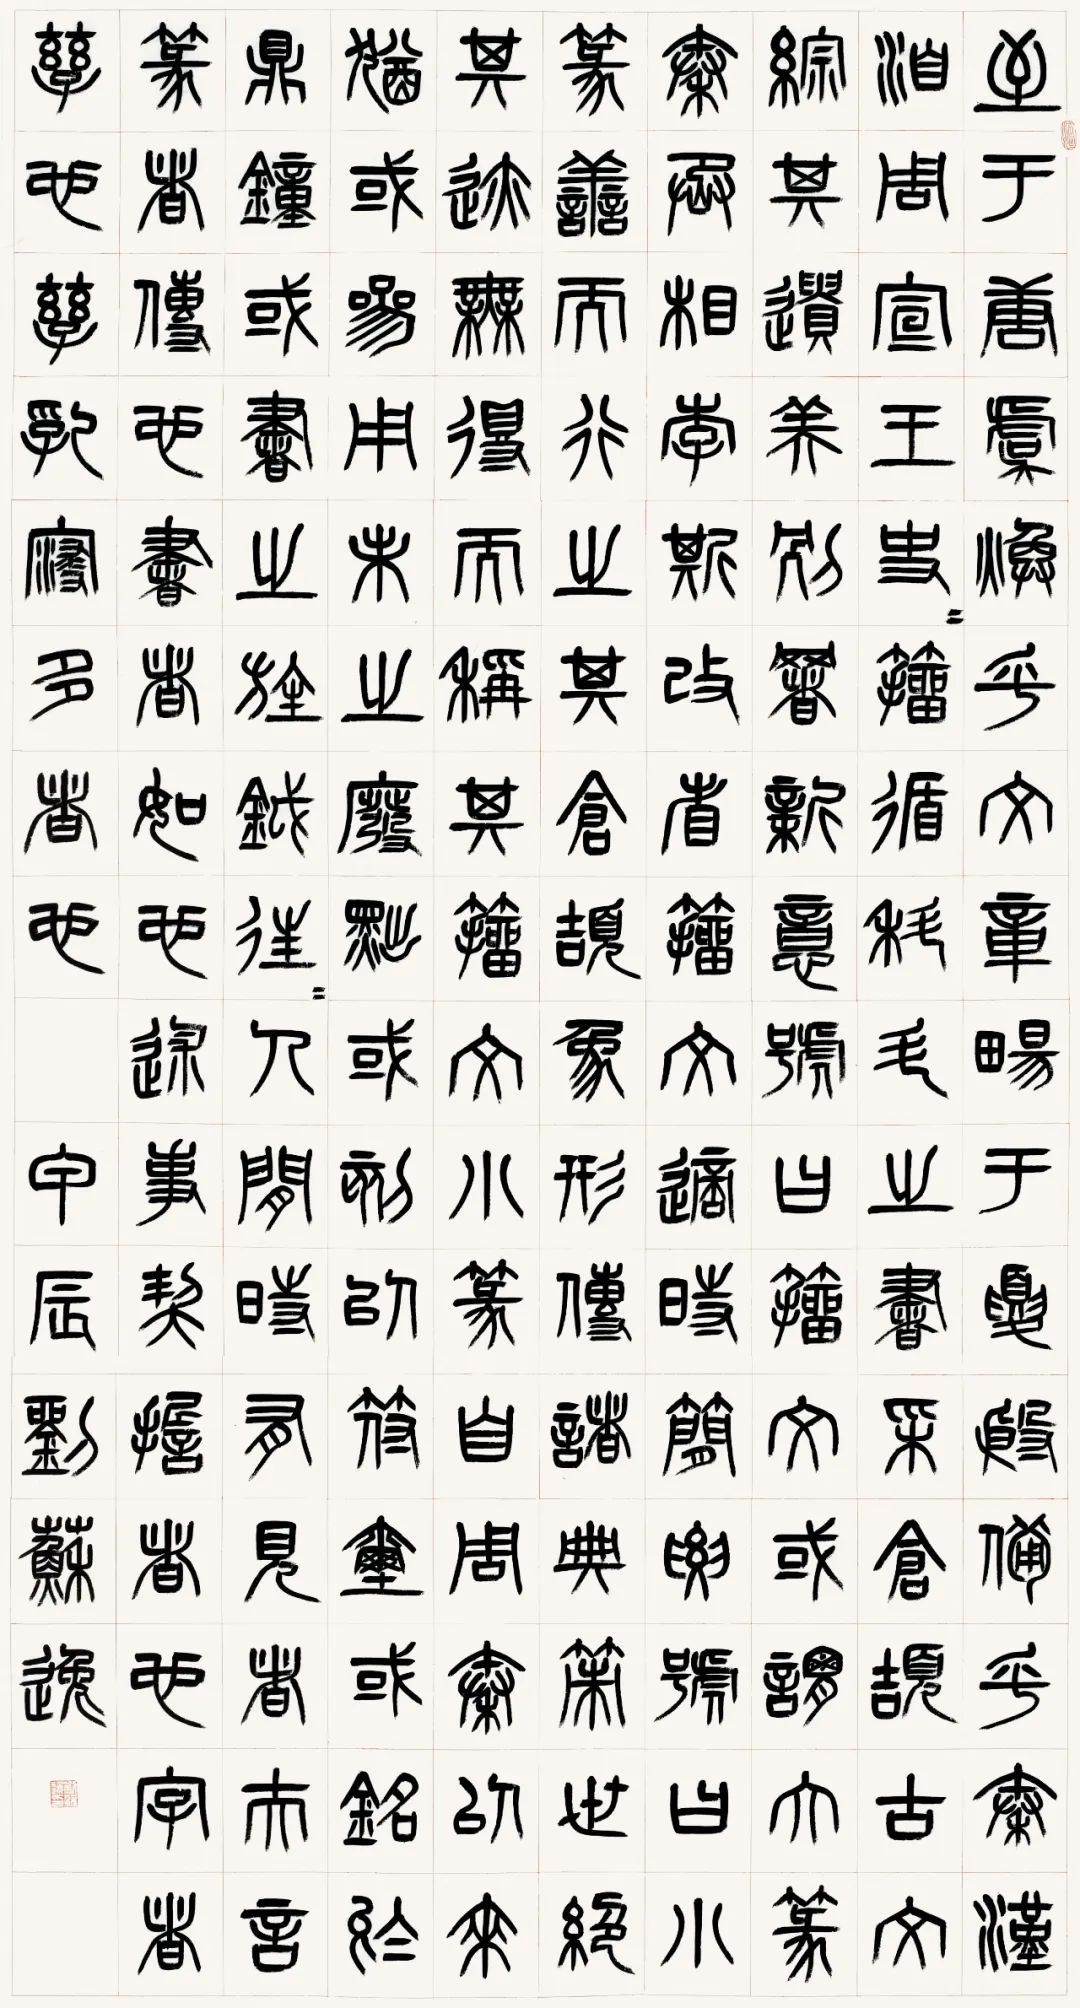 至于唐虞煥乎文章暢于夏殷備乎秦漢
洎周宣王史〻籀循科斗之書采倉頡古文
綜其遺美別署新意號曰籀文或謂大篆
秦丞相李斯改省籀文適時簡要號曰小
篆善而行之其倉頡象形傳諸典策世絕
其迹無得而稱其籀文小篆自周秦以來
猶或參用未之廢黜或刻以符璽或銘於
鼎鐘或書之旌鉞往〻人間時有見者夫言
篆者傳也書者如也述事契擔者也字者
孳也孳乳寖多者也 甲辰劉蘇逸